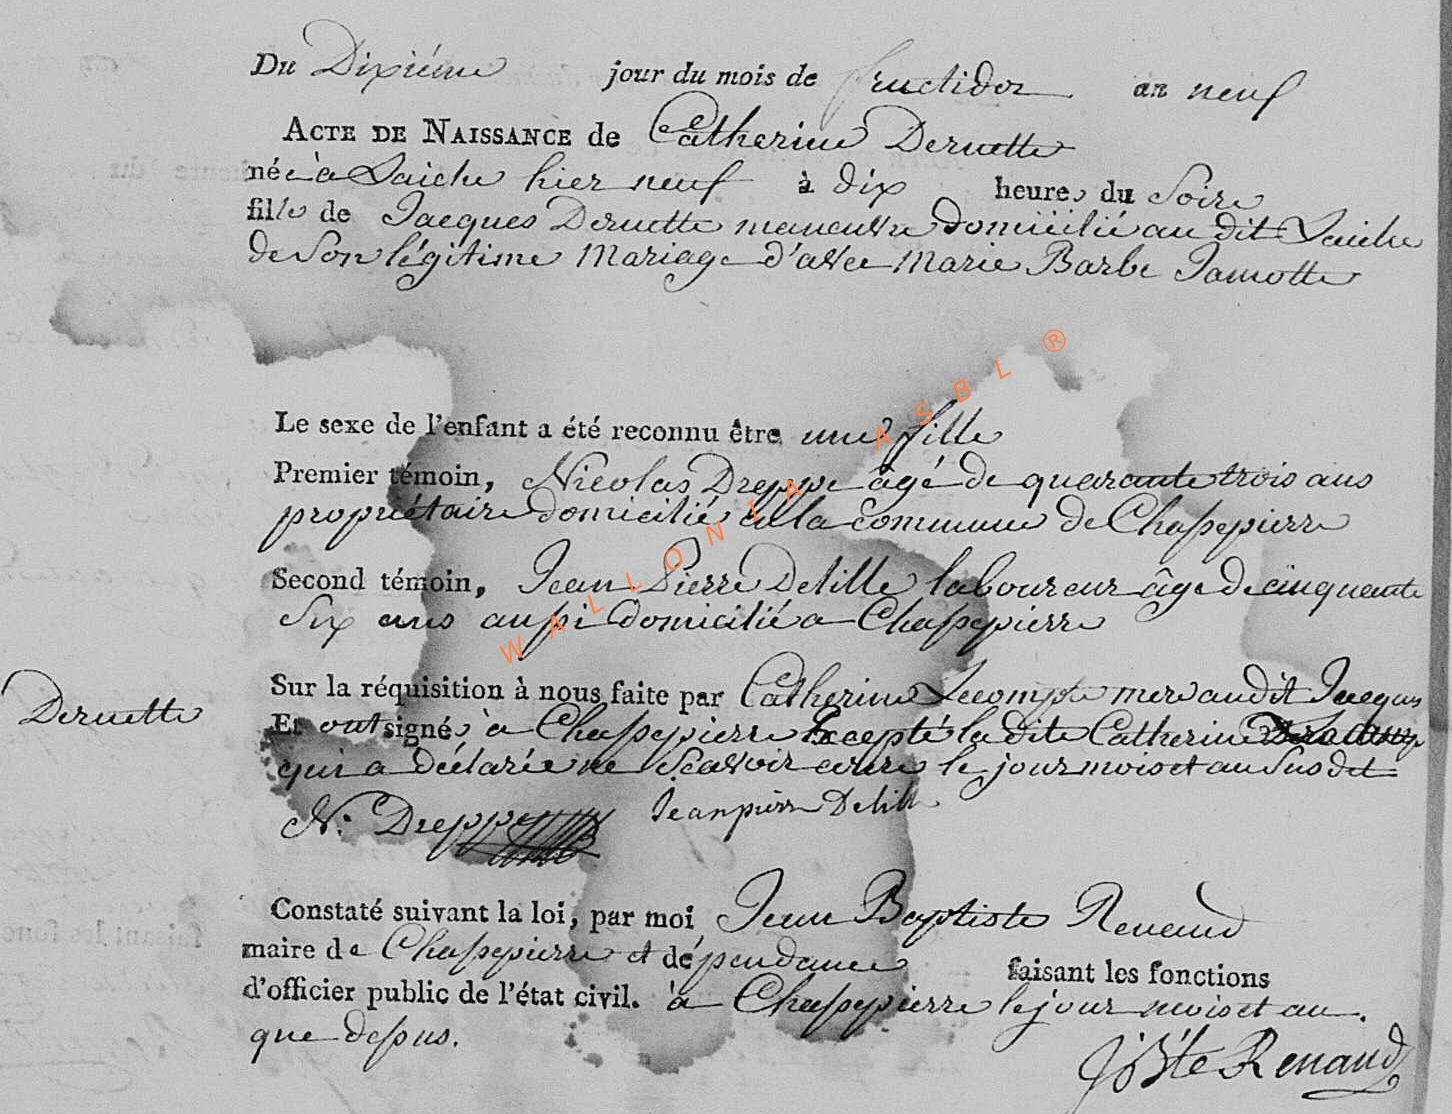 Du Dixiéme jour du mois de fructidor an neuf
ACTE DE NAISSANCE de Catherine Deruette
née à Laiche hier neuf à dix heures du Soire
fille de Jacques Deruette maneuvre Domicilié au dit Laiche
de Son légitime Mariage d'avec Marie Barbe Jamotte
Le sexe de l'enfant a été reconnu être une fille
Premier témoin, Nicolas Dreppe âgé de quarante trois ans
propriétaire domicilié à la commune de Chassepierre
Second témoin, Jean Pierre Delille laboureur âge de cinquante
Six ans aussi domicilié a Chassepierre
Sur la réquisition à nous faite par Catherine Lecompte mere audit Jacques
Deruette
Et ont signé à Chassepierre Excepté la dite Catherine
qui a déclarée ne Scavoir ecrire le jour mois et an Susdit
N: Dreppe Jeanpierre Delille
Constaté suivant la loi, par moi Jean Baptiste Renaud
maire de Chassepierre et dépendance faisant les fonctions
d'officier public de l'état civil. à Chassepierre le jour mois et an
que dessus.
J Bte Renaud
WALLONIA ASBL ®